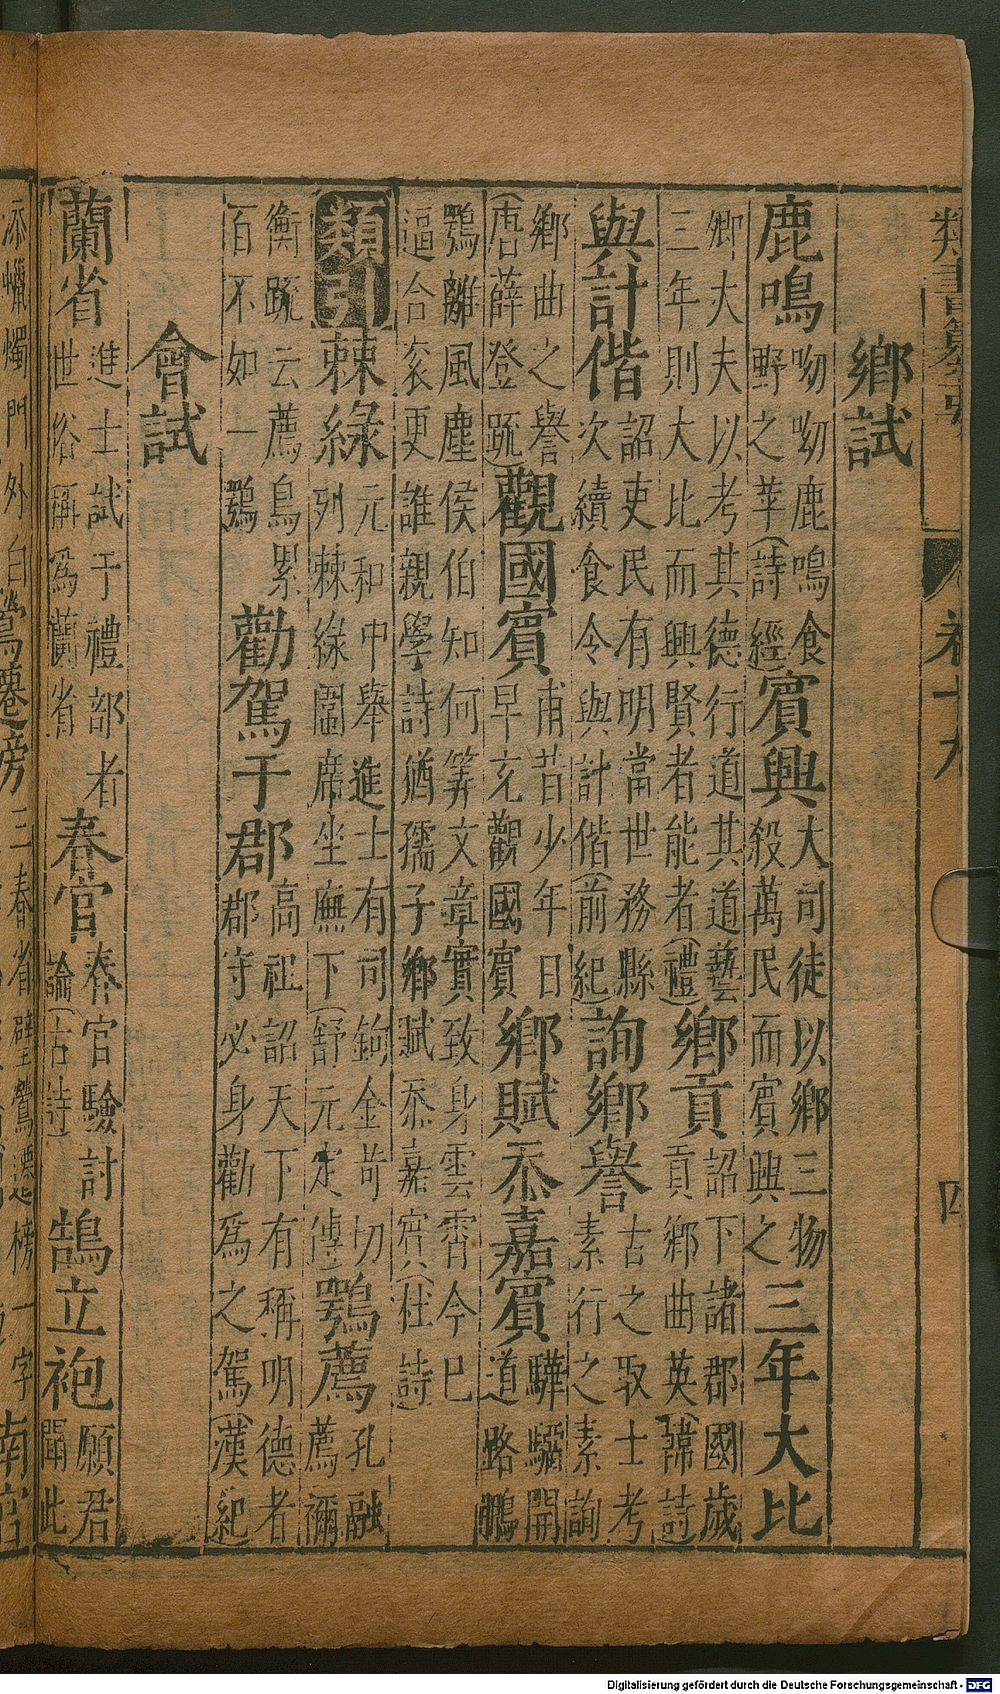 類書纂要 卷十九 四
鄉試
鹿鳴 呦呦鹿鳴食野之苹(詩經) 賓興 大司徒以鄉三物殺萬民而賓興之 三年大比
卿大夫以考其德行道其道藝三年則大比而興賢者能者(禮) 鄉貢 詔下諸郡國歲貢鄉曲英(韓詩)
與計偕 詔吏民有明當世務縣次續食令與計偕(前紀) 詢鄉譽 古之取士考素行之素詢
鄉曲之譽(唐薛登疏) 觀國賓 甫昔少年日早充觀國賓 鄉賦忝嘉賓 驊騮開道路鵬
鶚離風塵侯伯知何筭文章實致身雲霄今已逼台袞更誰親學詩猶孺子鄉賦忝嘉賓(杜詩)
類卽 棘緣 元和中舉進士有司鉤金苛切列棘緣圍席坐廡下(舒元定傳) 鶚薦 孔融薦禰
衡疏云薦鳥累百不如一鶚 勸駕于郡 高祖詔天下有稱明德者郡守必身勸爲之駕(漢紀)
會試
蘭省 進士試于禮部者世俗稱爲蘭省 春官 春官驗討論(古詩) 鵠立袍 願君聞此
添蠟燭門外白 鶯遷榜 三春省壁鶯遷榜一字 南宮
Digitalisierung gefördert durch die Deutsche Forschungsgemeinschaft - DFG